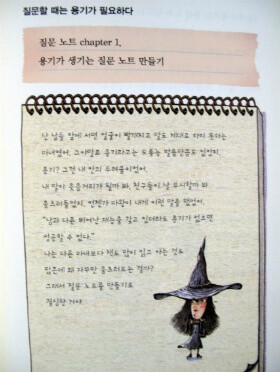 질문할 때는 용기가 필요하다
질문 노트 chapter 1.
용기가 생기는 질문 노트 만들기
난 남들 앞에 서면 얼굴이 빨개지고 말도 제대로 하지 못하는
마녀였어. 그야말로 용기라고는 도통 눈곱만큼도 없었지.
용기? 그건 내 안의 두려움이었어.
내 말이 웃음거리가 될까 봐, 친구들이 날 무시할까 봐
움츠러들었지. 언젠가 마왕이 내게 이런 말을 했었어.
"남과 다른 뛰어난 재능을 갖고 있더라도 용기가 없으면
성공할 수 없다."
나는 다른 마녀보다 책도 많이 읽고 아는 것도
많은데 왜 자꾸만 움츠러드는 걸까?
그래서 질문 노트를 만들기로
결심한 거야